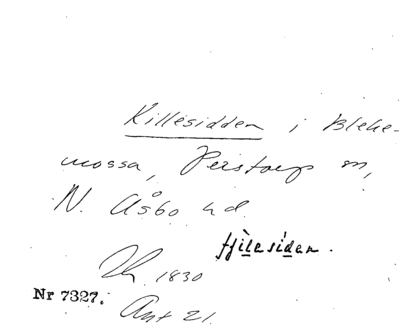 Killesidden i Bleke-
mossa, Perstorp sn,
N. Åsbo hd.
fjilesiden.
1830
Nr 7327.
Ant 21.